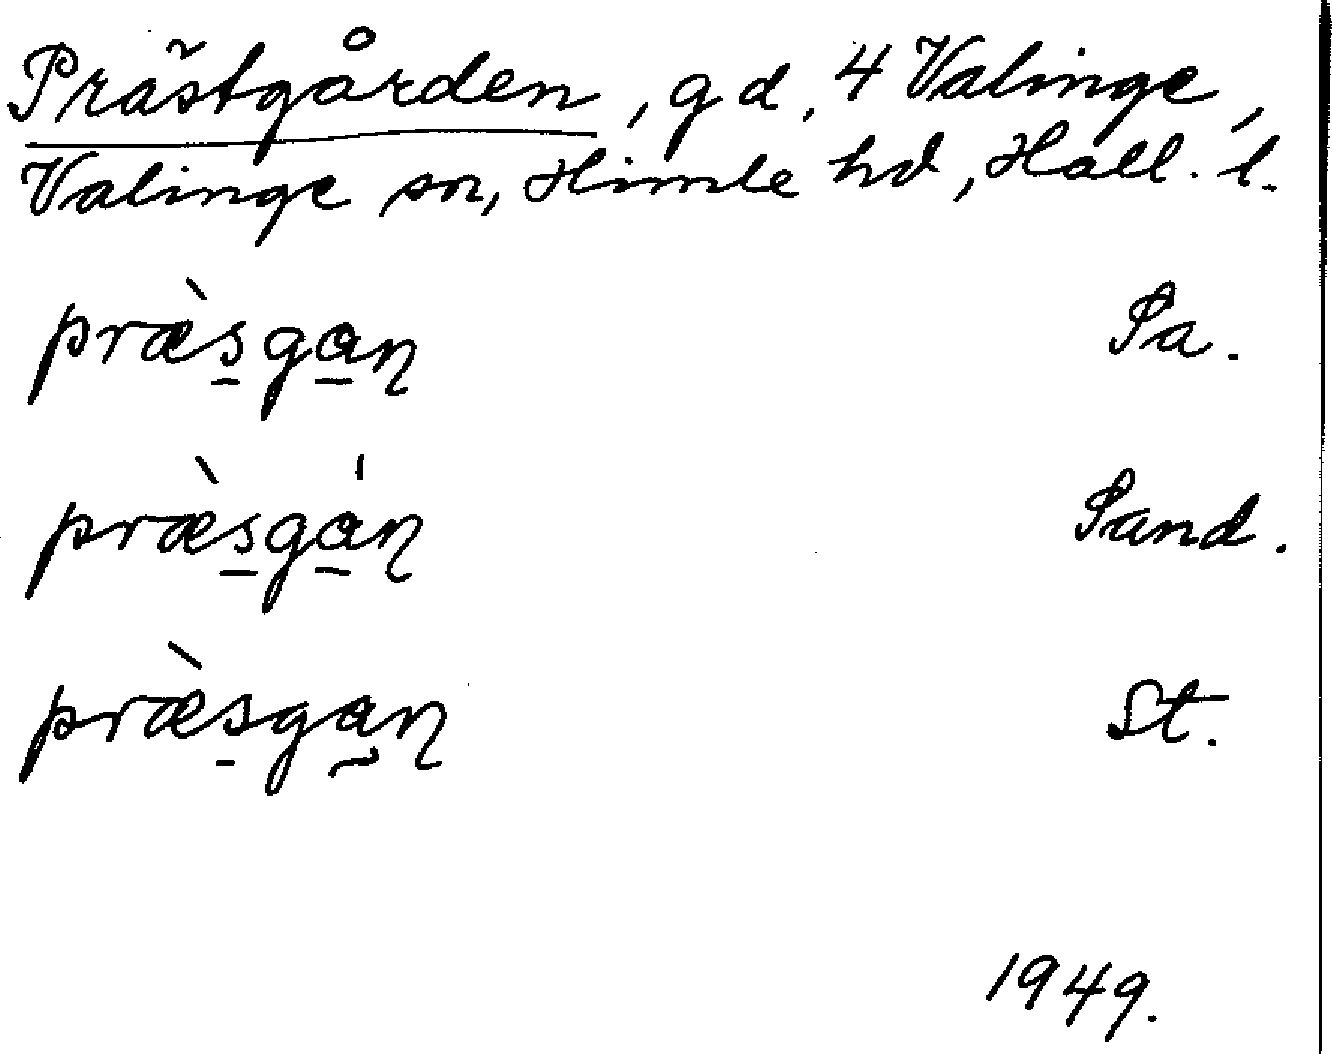 Prästgården, gd, 4 Valinge,
Valinge sn, Himle hd, Hall. l.
præ̀s̱ga̱ɳ Sa.
præ̀s̱gá̱ɳ Sand.
præ̀s̱ga̰ɳ St.
1949.